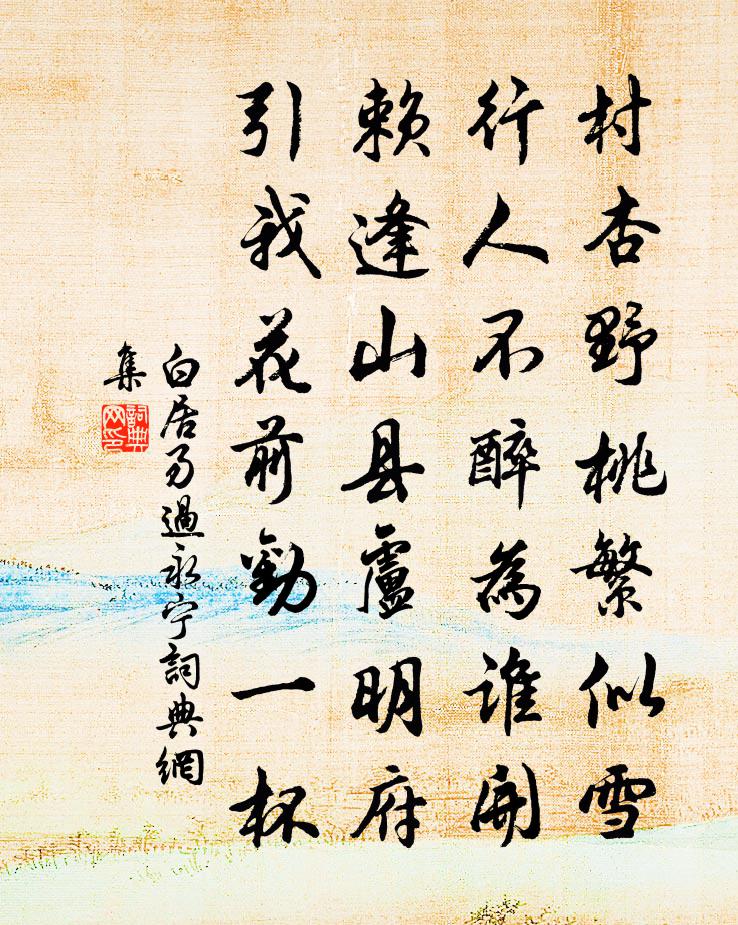 村杏野桃繁似雪
行人不醉為谁開
赖逢山县盧明府
引我花前勸一杯
白居易過永宁詞典網
集
詞典网印